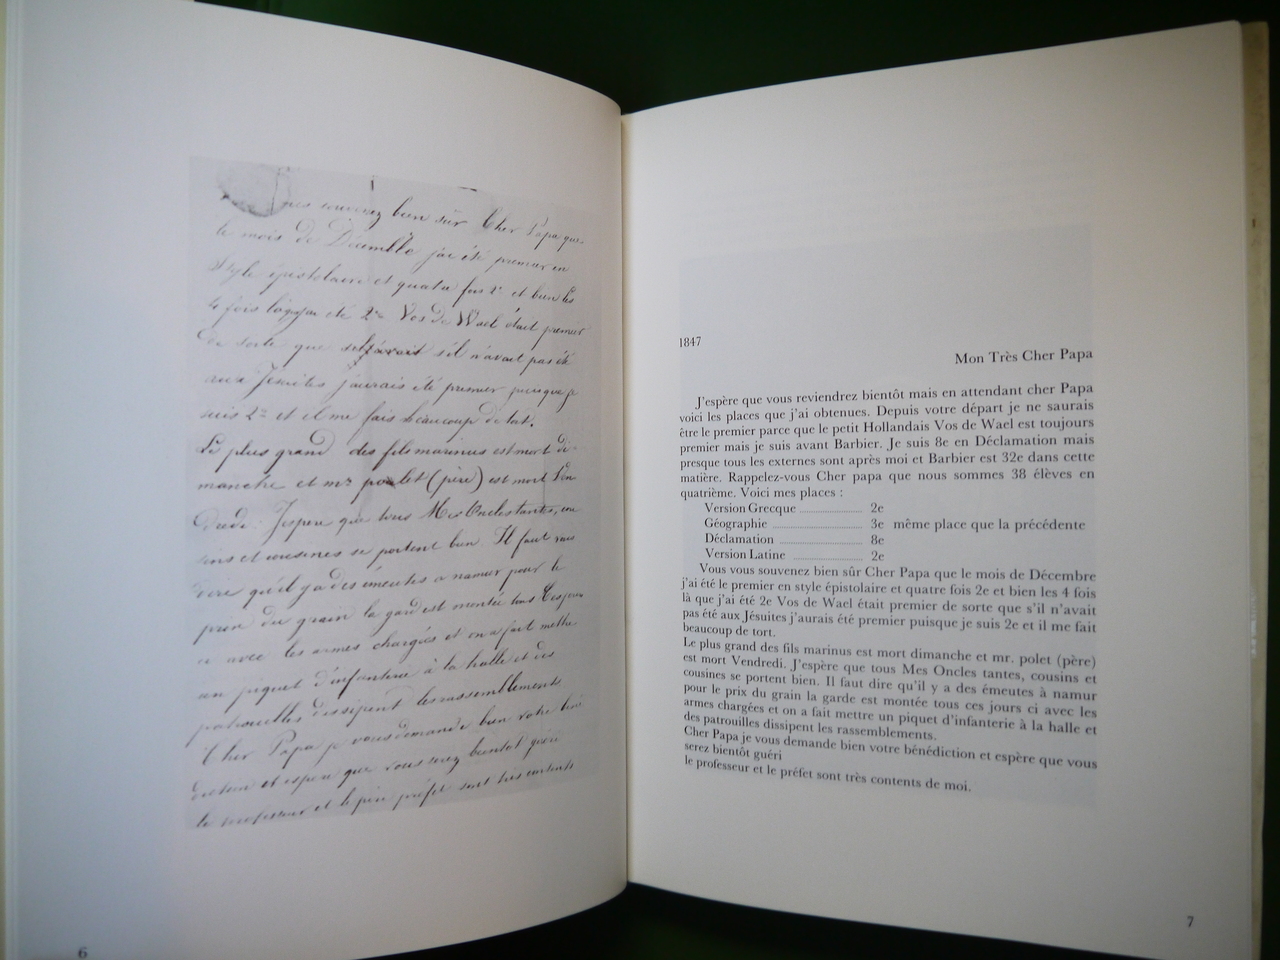 vous souvenez bien sûr Cher Papa que
le mois de Décembre j'ai été premier en
style épistolaire et quatre fois 2e et bien les
4 fois là que j'ai été 2e Vos de Wael était premier
de sorte que s'il n'avait pas été
aux Jésuites j'aurais été premier puisque je
suis 2e et il me fais beaucoup de tort.
Le plus grand des fils marinus est mort di-
manche et mr polet (père) est mort Ven-
dredi. J'espère que tous Mes Oncles tantes, cou
sins et cousines se portent bien. Il faut vous
dire qu'il y a des émeutes a namur pour le
prix du grain la garde est montée tous ces jours
ci avec les armes chargées et on a fait mettre
un piquet d'infanterie à la halle et des
patrouilles dissipent les rassemblements
Cher Papa je vous demande bien votre béné
diction et espère que vous serez bientôt guéri
le professeur et le père préfet sont très contents
6
1847
Mon Très Cher Papa
J'espère que vous reviendrez bientôt mais en attendant cher Papa
voici les places que j'ai obtenues. Depuis votre départ je ne saurais
être le premier parce que le petit Hollandais Vos de Wael est toujours
premier mais je suis avant Barbier. Je suis 8e en Déclamation mais
presque tous les externes sont après moi et Barbier est 32e dans cette
matière. Rappelez-vous Cher papa que nous sommes 38 élèves en
quatrième. Voici mes places :
Version Grecque ........ 2e
Géographie ........ 3e même place que la précédente
Déclamation ........ 8e
Version Latine ........ 2e
Vous vous souvenez bien sûr Cher Papa que le mois de Décembre
j'ai été le premier en style épistolaire et quatre fois 2e et bien les 4 fois
là que j'ai été 2e Vos de Wael était premier de sorte que s'il n'avait
pas été aux Jésuites j'aurais été premier puisque je suis 2e et il me fait
beaucoup de tort.
Le plus grand des fils marinus est mort dimanche et mr. polet (père)
est mort Vendredi. J'espère que tous Mes Oncles tantes, cousins et
cousines se portent bien. Il faut dire qu'il y a des émeutes à namur
pour le prix du grain la garde est montée tous ces jours ci avec les
armes chargées et on a fait mettre un piquet d'infanterie à la halle et
des patrouilles dissipent les rassemblements.
Cher Papa je vous demande bien votre bénédiction et espère que vous
serez bientôt guéri
le professeur et le préfet sont très contents de moi.
7